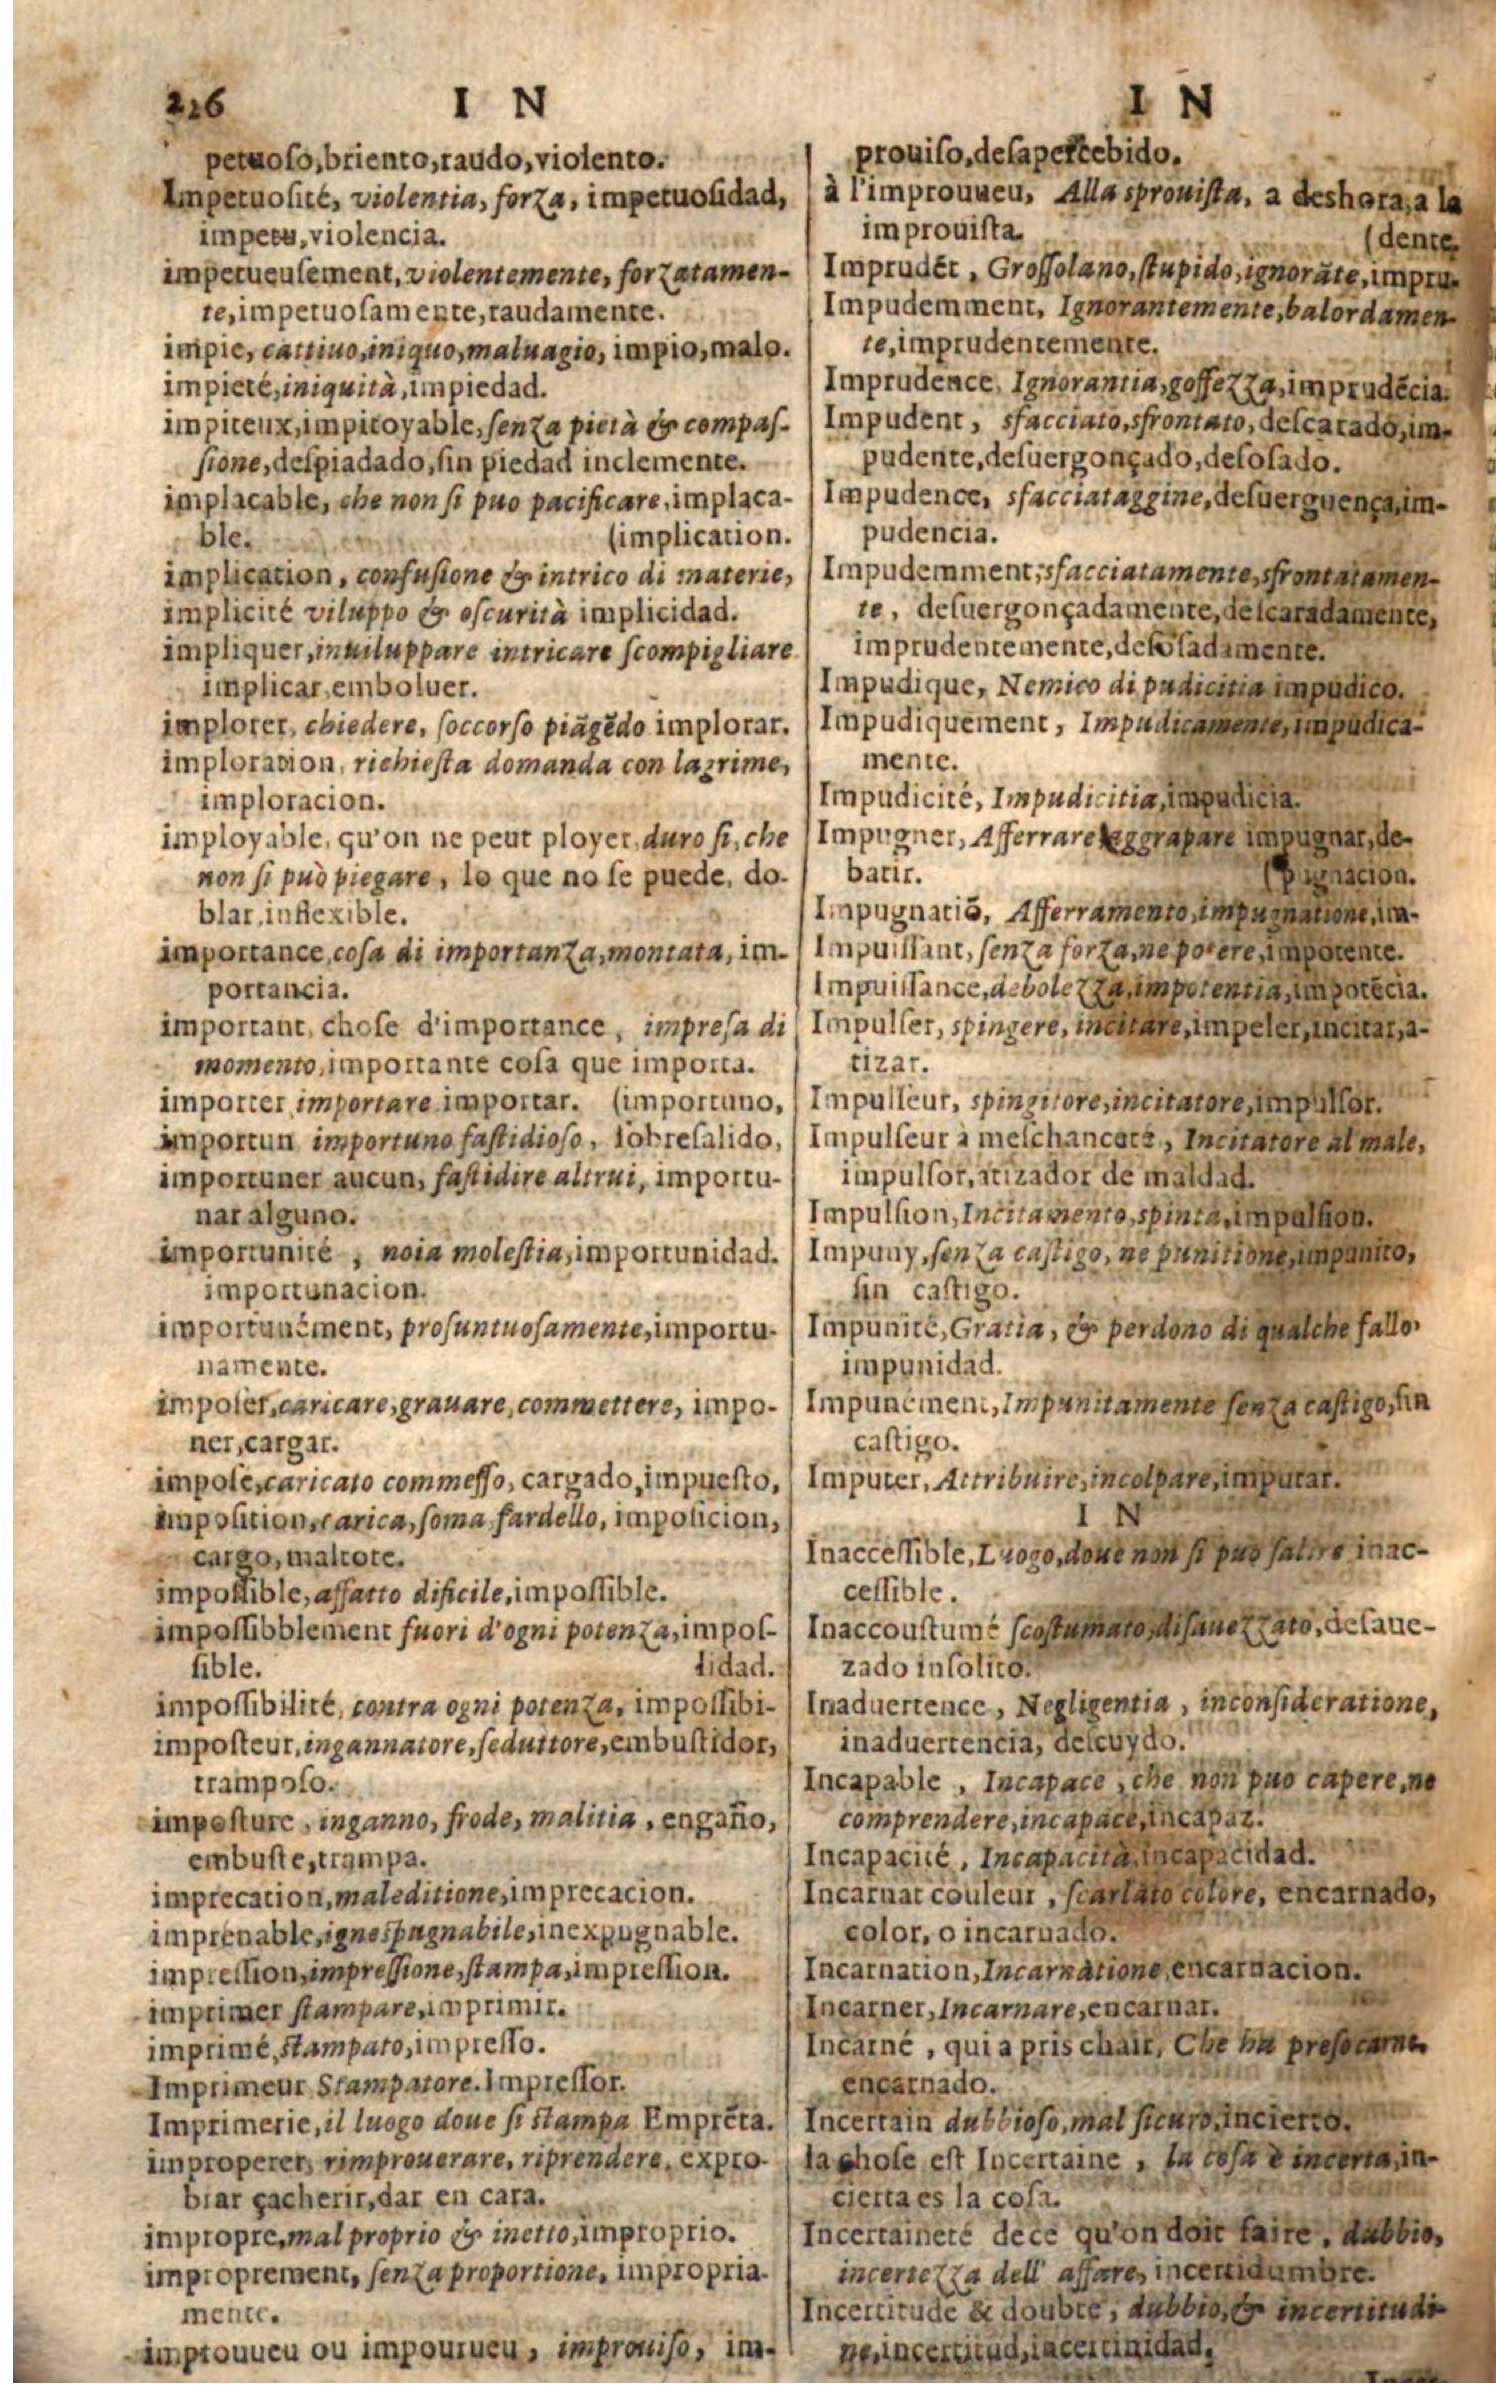 226 I N
petuoso,briento,raudo,violento.
Impetuosité, violentia, forza, impetuosidad,
impetu,violencia.
impetueusement, violentemente, forzatamen-
te,impetuosamente,raudamente.
impie, cattiuo,iniquo,maluagio, impio,malo.
impieté,iniquità,impiedad.
impiteux,impitoyable,senza pietà & compas-
sione,despiadado,sin piedad inclemente.
implacable, che non si puo pacificare,implaca-
ble. (implication.
implication, confusione & intrico di materie,
implicité viluppo & oscurità implicidad.
impliquer,inuiluppare intricare scompigliare
implicar,emboluer.
implorer, chiedere, soccorso piãgẽdo implorar.
imploration, richiesta domanda con lagrime,
imploracion.
imployable, qu'on ne peut ployer,duro si,che
non si può piegare, lo que no se puede, do-
blar,inflexible.
importance,cosa di importanza,montata, im-
portancia.
important, chose d'importance, impresa di
momento,importante cosa que importa.
importer importare importar. (importuno,
importun importuno fastidioso, sobresalido,
importuner aucun, fastidire altrui, importu-
nar alguno.
importunité, noia molestia,importunidad.
importunacion.
importunément, prosuntuosamente,importu-
namente.
imposer,caricare,grauare,commettere, impo-
ner,cargar.
imposé,caricato commesso, cargado,impuesto,
imposition,carica,soma fardello, imposicion,
cargo,maltote.
impossible,affatto dificile,impossible.
impossibblement fuori d'ogni potenza,impos-
sible. lidad.
impossibilité, contra ogni potenza, impossibi-
imposteur,ingannatore,seduttore,embustidor,
tramposo.
imposture, inganno, frode, malitia, engaño,
embuste,trampa.
imprecation,maleditione,imprecacion.
imprenable,ignespugnabile,inexpugnable.
impression,impressione,stampa,impression.
imprimer stampare,imprimir.
imprimé,stampato,impresso.
Imprimeur Stampatore.Impressor.
Imprimerie,il luogo doue si stampa Emprẽta.
improperer, rimprouerare, riprendere, expro-
brar çacherir,dar en cara.
impropre,mal proprio & inetto,improprio.
improprement, senza proportione, impropria-
mente.
improuueu ou impourueu, improuiso, im-
I N
prouiso,desapercebido.
à l'improuueu, Alla sprouista, a deshora,a la
improuista. (dente.
Imprudẽt, Grossolano,stupido,ignorãte,impru-
Impudemment, Ignorantemente,balordamen-
te,imprudentemente.
Imprudence, Ignorantia,goffezza,imprudẽcia.
Impudent, sfacciato,sfrontato,descarado,im-
pudente,desuergonçado,desosado.
Impudence, sfacciataggine,desuerguença,im-
pudencia.
Impudemment,sfacciatamente,sfrontatamen-
te, desuergonçadamente,descaradamente,
imprudentemente,desosadamente.
Impudique, Nemico di pudicitia impudico.
Impudiquement, Impudicamente,impudica-
mente.
Impudicité, Impudicitia,impudicia.
Impugner, Afferrare aggrapare impugnar,de-
batir. (pugnacion.
Impugnatiõ, Afferramento,impugnatione,im-
Impuissant,senza forza,ne potere,impotente.
Impuissance,debolezza,impotentia,impotẽcia.
Impulser, spingere, incitare,impeler,incitar,a-
tizar.
Impulseur, spingitore,incitatore,impulsor.
Impulseur à meschanceté, Incitatore al male,
impulsor,atizador de maldad.
Impulsion,Incitamento,spinta,impulsion.
Impuny,senza castigo, ne punitione,impunito,
sin castigo.
Impunité,Gratia, & perdono di qualche fallo,
impunidad.
Impunément,Impunitamente senza castigo,sin
castigo.
Imputer, Attribuire,incolpare,imputar.
I N
Inaccessible,Luogo,doue non si puo salire inac-
cessible.
Inaccoustumé scostumato,disauezzato,desaue-
zado insolito.
Inaduertence, Negligentia, inconsideratione,
inaduertencia, descuydo.
Incapable, Incapace, che non puo capere,ne
comprendere,incapace,incapaz.
Incapacité, Incapacità,incapacidad.
Incarnat couleur, scarlato colore, encarnado,
color, o incarnado.
Incarnation,Incarnatione,encarnacion.
Incarner,Incarnare,encarnar.
Incarné, qui a pris chair, Che ha preso carne,
encarnado.
Incertain dubbioso,mal sicuro,incierto.
la chose est Incertaine, la cosa è incerta,in-
cierta es la cosa.
Incertaineté dece qu'on doit faire, dubbio,
incertezza dell' affare, incertidumbre.
Incertitude & doubte, dubbio,& incertitudi-
ne,incertitud,incertinidad.